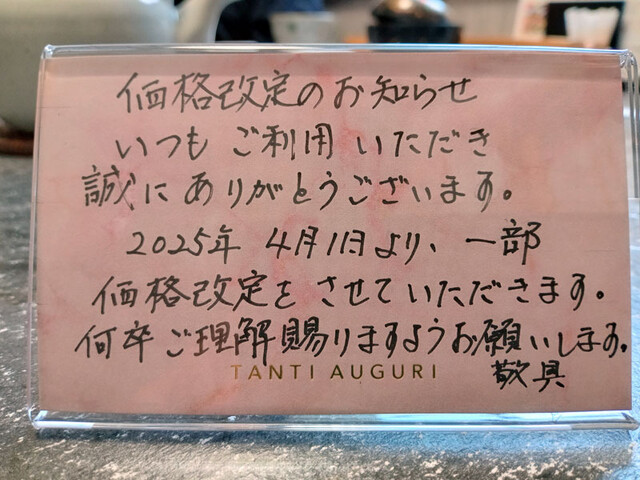 価格改定のお知らせ
いつもご利用いただき
誠にありがとうございます。
2025年 4月1日より、一部
価格改定をさせていただきます。
何卒ご理解賜りますようお願いします。
TANTI AUGURI
敬具